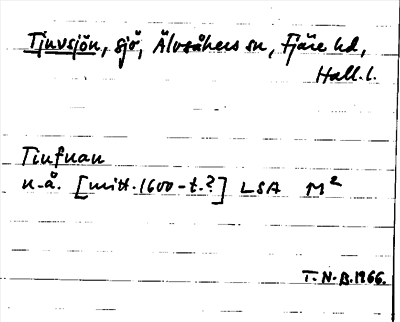 Tjuvsjön, sjö, Älvsåkers sn, Fjäre hd,
Hall. l.
Tiufuan
u.å. [mitt. 1600-t.?] LSA M²
T.N.B. 1966.